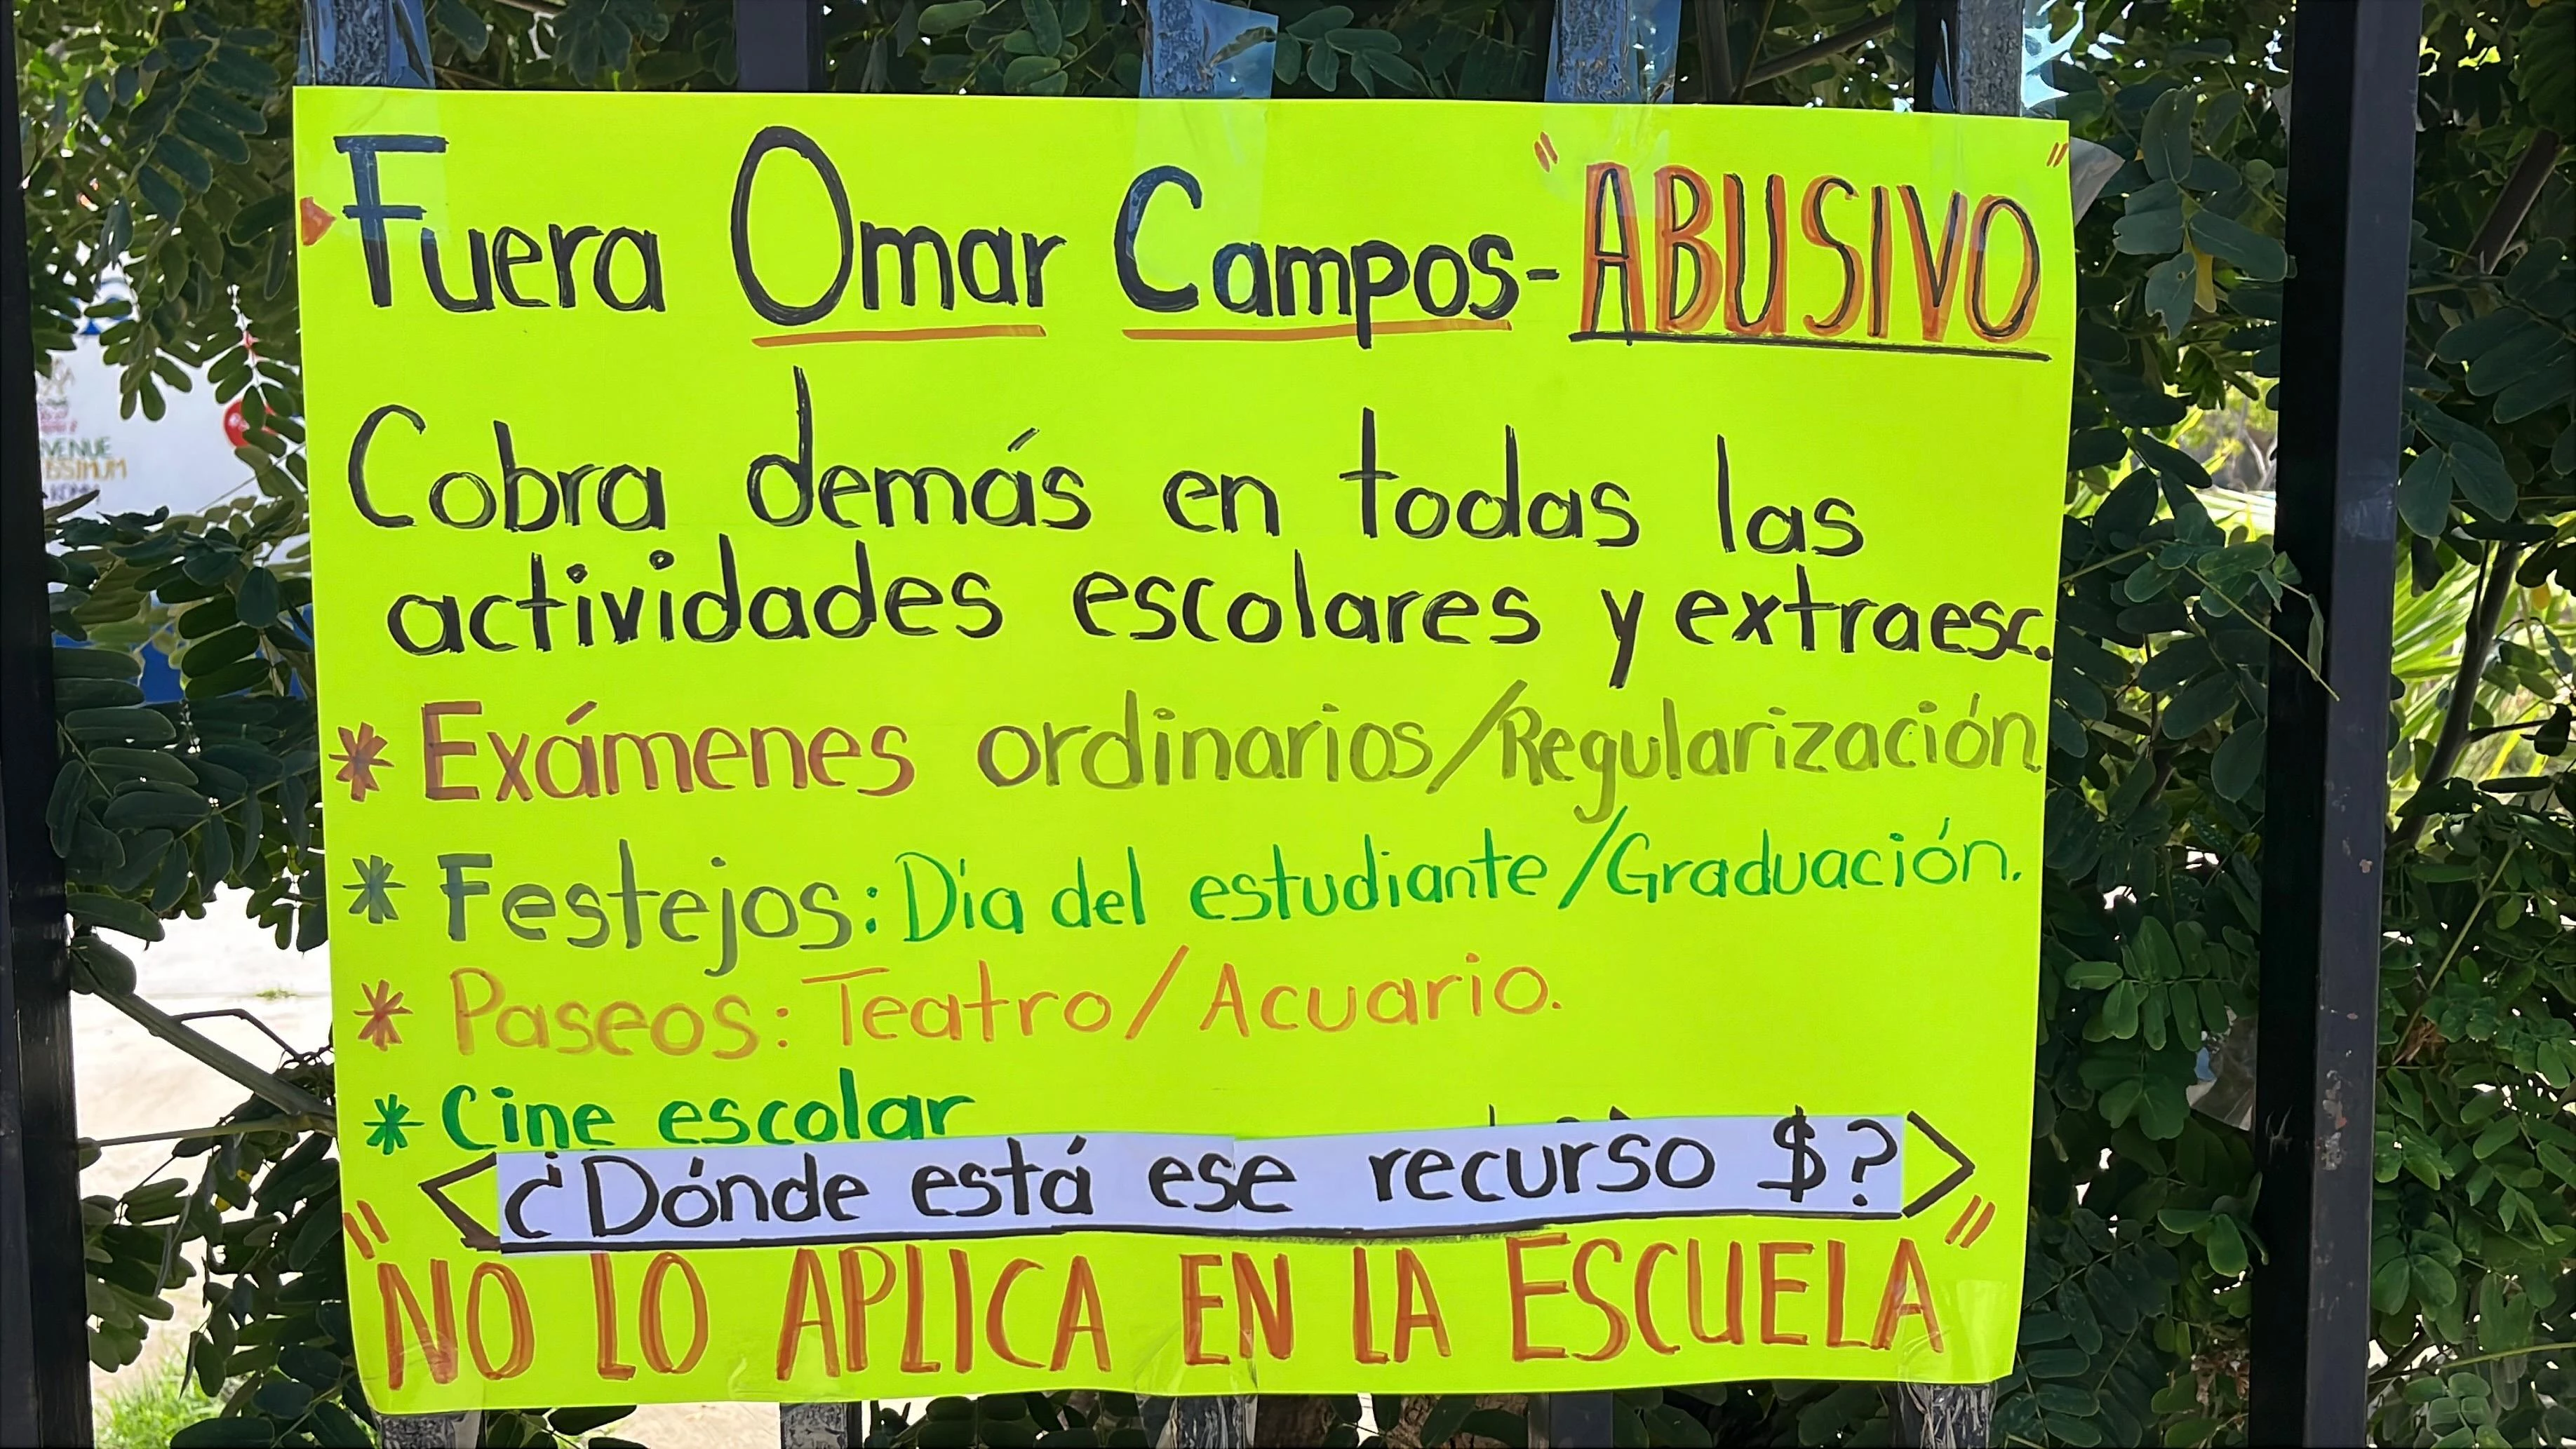 Fuera Omar Campos- "ABUSIVO"
Cobra demás en todas las
actividades escolares y extraesc.
* Exámenes ordinarios/Regularización.
* Festejos: Día del estudiante/Graduación.
* Paseos: Teatro/Acuario.
* Cine escolar
<¿Dónde está ese recurso $?>
"NO LO APLICA EN LA ESCUELA"
VENUE